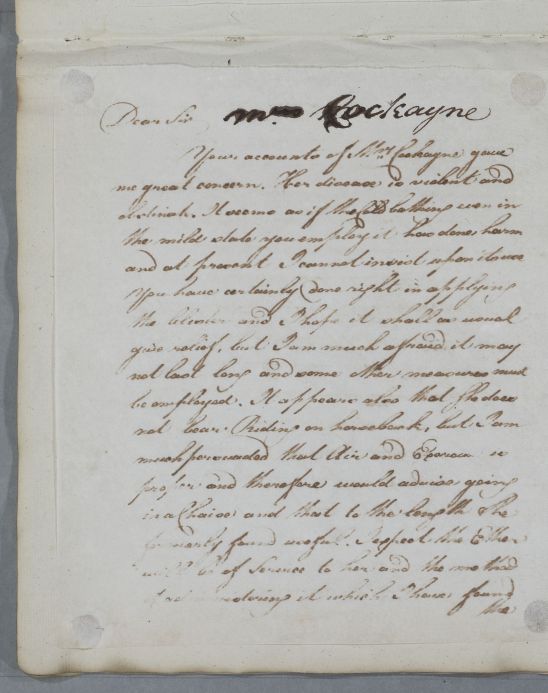 Dear Sir Mrs Cockayne
Your accounts of Mrs Cockayne gave
me great concern. Her disease is violent and
obstinate. It seems as if the Cold bathing even in
the mild state you employ it has done harm
and at present I cannot insist upon its use
You have certainly done right in applying
the blister and I hope it shall as usual
give relief, but I am much afraid it may
not last long and some other measures must
be employed. It appears also that she does
not bear Riding on horseback, but I am
much persuaded that Air and Exercise is
proper and therefore would advise going
in a Chaise and that to the length She
formerly found useful. I expect the Ether
will be of Service to her and the method
of administering it which I have found
the